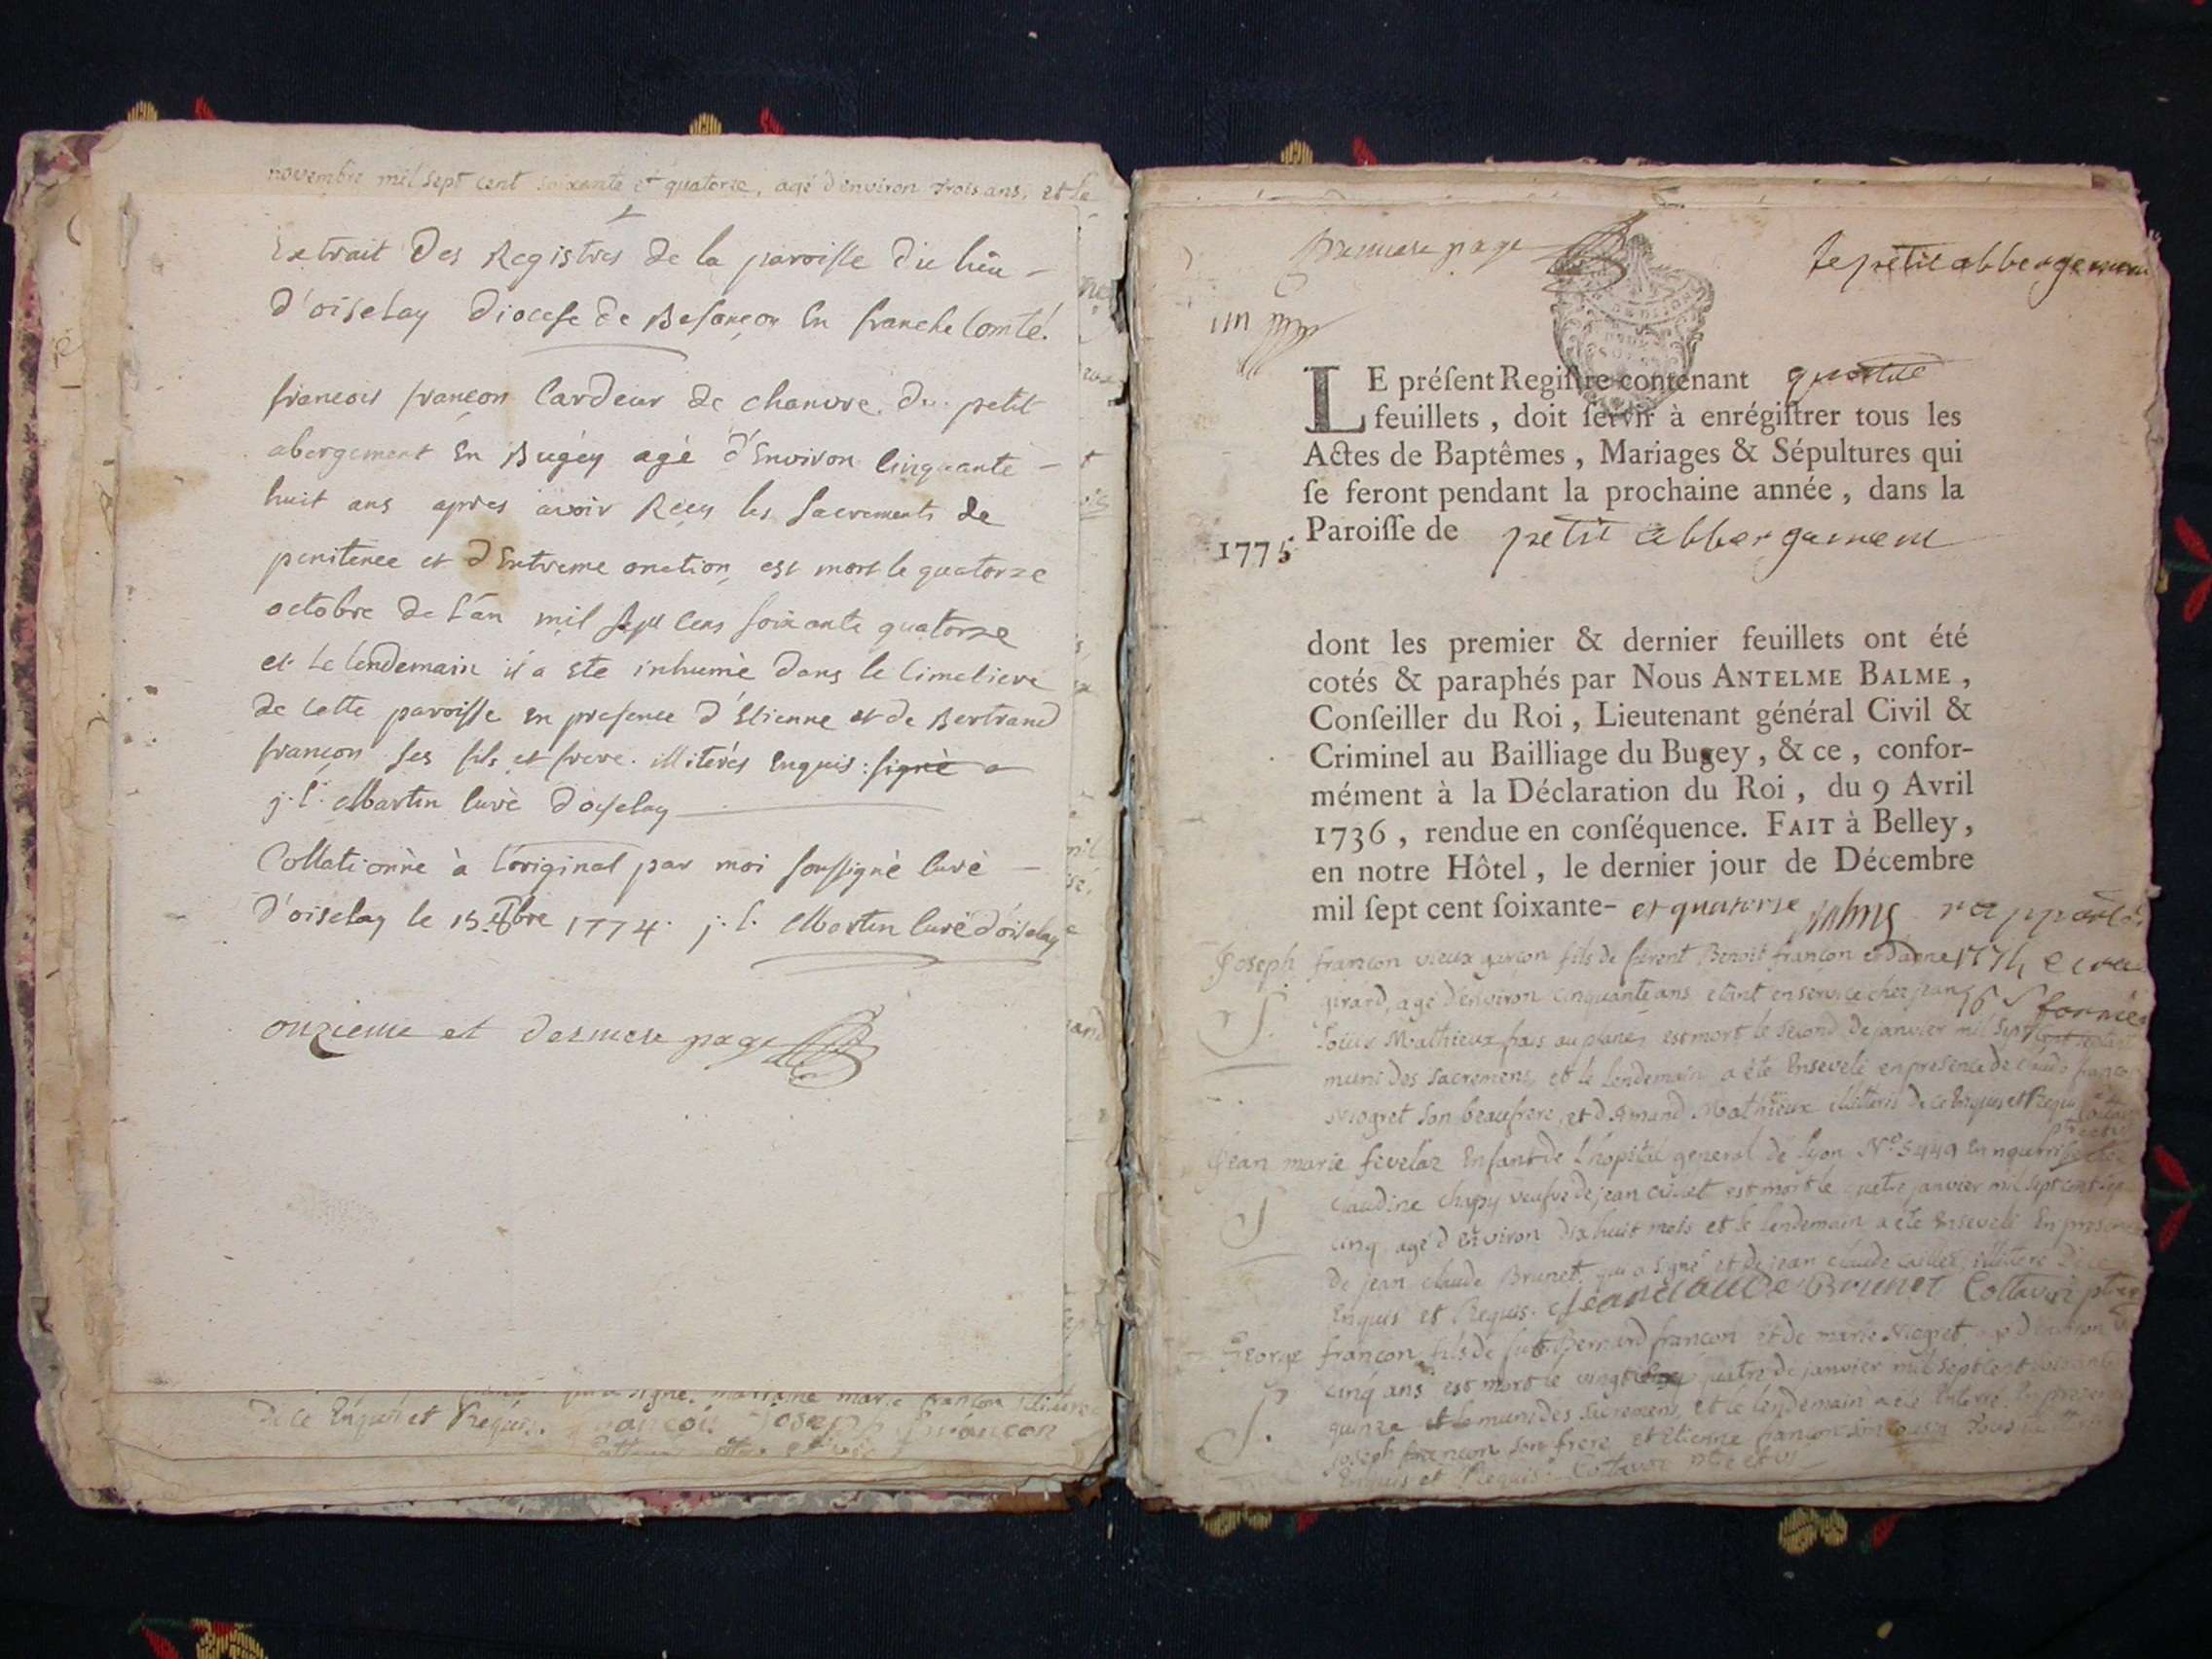 novembre mil sept cent soixante et quatorze, agé d'environ trois ans, et le
Extrait des Registres de la paroisse du lieu
d'oiselay diocese de Besançon En franche Comté.
francois françon Cardeur de chanvre du petit
abergement En Bugey agé d'Environ Cinquante
huit ans apres avoir Reçu les Sacrements de
penitence et d'Extreme onction, est mort le quatorze
octobre de l'an mil sept cens soixante quatorze
et le lendemain il a eté inhumé dans le Cimetiere
de cette paroisse en presence d'Etienne et de Bertrand
françon ses fils et frere. illiterés Enquis : signé
j. C. Martin Curé d'oiselay
Collationné à l'original par moi soussigné Curé
d'oiselay le 15 1774. j. C. Martin Curé d'oiselay
onzieme et derniere page
signé, marie françon illitere
de ce Enquis et Requis. françois Joseph françon
premiere page
le petit abbergement
un
LE préſent Regiſtre contenant quatre
feuillets , doit ſervir à enrégiſtrer tous les
Actes de Baptêmes , Mariages & Sépultures qui
ſe feront pendant la prochaine année , dans la
1775 Paroiſſe de petit abbergement
dont les premier & dernier feuillets ont été
cotés & paraphés par Nous ANTELME BALME ,
Conſeiller du Roi , Lieutenant général Civil &
Criminel au Bailliage du Bugey , & ce , confor-
mément à la Déclaration du Roi , du 9 Avril
1736 , rendue en conſéquence. FAIT à Belley ,
en notre Hôtel , le dernier jour de Décembre
mil ſept cent ſoixante- et quatorze
Joseph françon vieux garçon fils de Benoit françon et d'anne
girard, agé d'environ cinquante ans etant en service chez jean
Mathieux est mort le second de janvier mil sept
muni des sacremens, et le lendemain a été Enseveli en presence de Claude
Mogret son beaufrere, et d'Amand Mathieux illitteris de ce Enquis et Requis
Jean marie fevelaz Enfant de l'hopital general de Lyon N° 5449 En
Claudine veufve de jean est mort le quatre janvier mil sept cent
cinq agé d'environ dix huit mois et le lendemain a été Enseveli En presence
de jean claude Brunet, qui a signé et de jean claude illitere de ce
Enquis et Requis. Jean claude Brunet
George françon fils de Bernard françon et de marie Mogret, d'environ
cinq ans est mort le vingt quatre de janvier mil sept cent soixante
quinze muni des sacremens, et le lendemain a été Enterré En presence
joseph françon son frere et Etienne françon son cousin
Enquis et Requis.